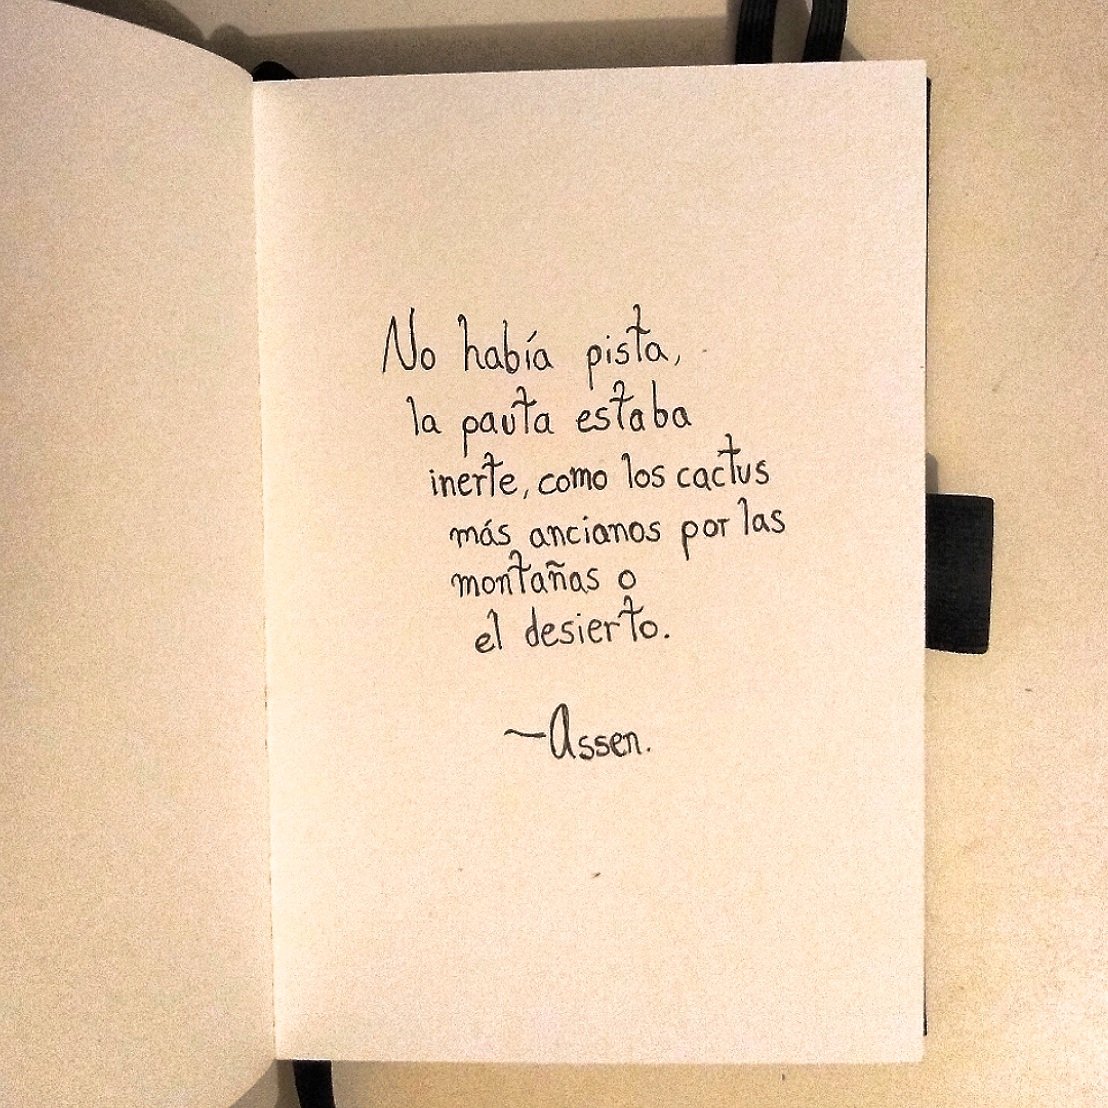 No había pista,
la pauta estaba
inerte, como los cactus
más ancianos por las
montañas o
el desierto.
~Assen.